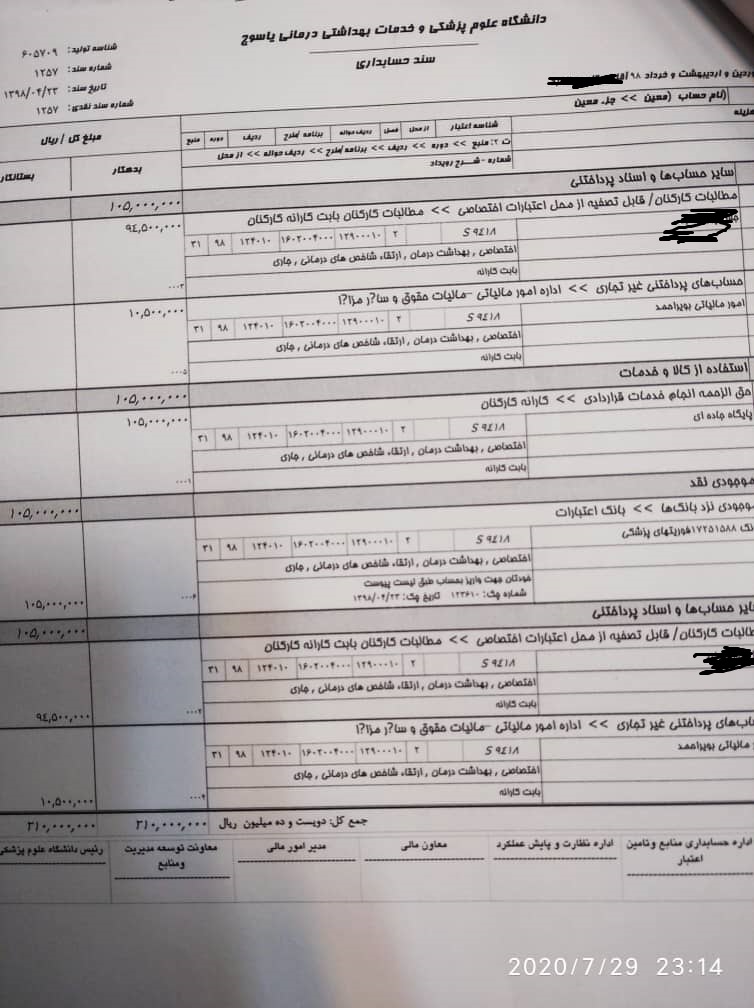 دانشگاه علوم پزشکی و خدمات بهداشتی درمانی یاسوج
سند حسابداری
شناسه تولید: ۶۰۵۷۰۹
شماره سند: ۱۲۵۷
تاریخ سند: ۱۳۹۸/۰۴/۲۳
شماره سند نقدی: ۱۲۵۷
وردین و اردیبهشت و خرداد ۹۸
(نام حساب (معین >> جزء معین
شناسه اعتبار ازمحل فصل ردیف حواله برنامه/طرح ردیف دوره منبع
مبلغ کل / ریال
هزینه
ت ۲: منبع >> دوره >> ردیف >> برنامه/طرح >> ردیف حواله >> از محل
شماره - شرح رویداد
بدهکار بستانکار
سایر حساب‌ها و اسناد پرداختنی
۱۰۵,۰۰۰,۰۰۰
مطالبات کارکنان/ قابل تصفیه از محل اعتبارات اختصاصی >> مطالبات کارکنان بابت کارانه کارکنان
۹۴,۵۰۰,۰۰۰
S ۹۴۱۸ ۲ ۱۲۹۰۰۰۱۰ ۱۶۰۲۰۰۴۰۰۰ ۱۲۴۰۱۰ ۹۸ ۳۱
اختصاصی , بهداشت درمان , ارتقاء شاخص های درمانی , جاری
بابت کارانه
۰۰۰۳
حساب‌های پرداختنی غیر تجاری >> اداره امور مالیاتی -مالیات حقوق و سا?ر مزا?ا
۱۰,۵۰۰,۰۰۰
امور مالیاتی بویراحمد
S ۹۴۱۸ ۲ ۱۲۹۰۰۰۱۰ ۱۶۰۲۰۰۴۰۰۰ ۱۲۴۰۱۰ ۹۸ ۳۱
اختصاصی , بهداشت درمان , ارتقاء شاخص های درمانی , جاری
بابت کارانه
۰۰۰۵
استفاده از کالا و خدمات
۱۰۵,۰۰۰,۰۰۰
حق الزحمه انجام خدمات قراردادی >> کارانه کارکنان
۱۰۵,۰۰۰,۰۰۰
پایگاه جاده ای
S ۹۴۱۸ ۲ ۱۲۹۰۰۰۱۰ ۱۶۰۲۰۰۴۰۰۰ ۱۲۴۰۱۰ ۹۸ ۳۱
اختصاصی , بهداشت درمان , ارتقاء شاخص های درمانی , جاری
بابت کارانه
۰۰۰۱
موجودی نقد
۱۰۵,۰۰۰,۰۰۰
موجودی نزد بانک‌ها >> بانک اعتبارات
نک ۱۷۲۵۱۵۸۸فوریتهای پزشکی
S ۹۴۱۸ ۲ ۱۲۹۰۰۰۱۰ ۱۶۰۲۰۰۴۰۰۰ ۱۲۴۰۱۰ ۹۸ ۳۱
اختصاصی , بهداشت درمان , ارتقاء شاخص های درمانی , جاری
خودتان جهت واریز بحساب طبق لیست پیوست
شماره چک: ۱۲۳۶۱۰ تاریخ چک: ۱۳۹۸/۰۴/۲۳
۰۰۰۶
۱۰۵,۰۰۰,۰۰۰
سایر حساب‌ها و اسناد پرداختنی
۱۰۵,۰۰۰,۰۰۰
طالبات کارکنان/ قابل تصفیه از محل اعتبارات اختصاصی >> مطالبات کارکنان بابت کارانه کارکنان
S ۹۴۱۸ ۲ ۱۲۹۰۰۰۱۰ ۱۶۰۲۰۰۴۰۰۰ ۱۲۴۰۱۰ ۹۸ ۳۱
اختصاصی , بهداشت درمان , ارتقاء شاخص های درمانی , جاری
بابت کارانه
۰۰۰۲
۹۴,۵۰۰,۰۰۰
اب‌های پرداختنی غیر تجاری >> اداره امور مالیاتی -مالیات حقوق و سا?ر مزا?ا
مالیاتی بویراحمد
S ۹۴۱۸ ۲ ۱۲۹۰۰۰۱۰ ۱۶۰۲۰۰۴۰۰۰ ۱۲۴۰۱۰ ۹۸ ۳۱
اختصاصی , بهداشت درمان , ارتقاء شاخص های درمانی , جاری
بابت کارانه
۰۰۰۴
۱۰,۵۰۰,۰۰۰
جمع کل: دویست و ده میلیون ریال ۲۱۰,۰۰۰,۰۰۰ ۲۱۰,۰۰۰,۰۰۰
اداره حسابداری منابع وتامین اعتبار
اداره نظارت و پایش عملکرد
معاون مالی
مدیر امور مالی
معاونت توسعه مدیریت ومنابع
رئیس دانشگاه علوم پزشکی
2020/7/29 23:14